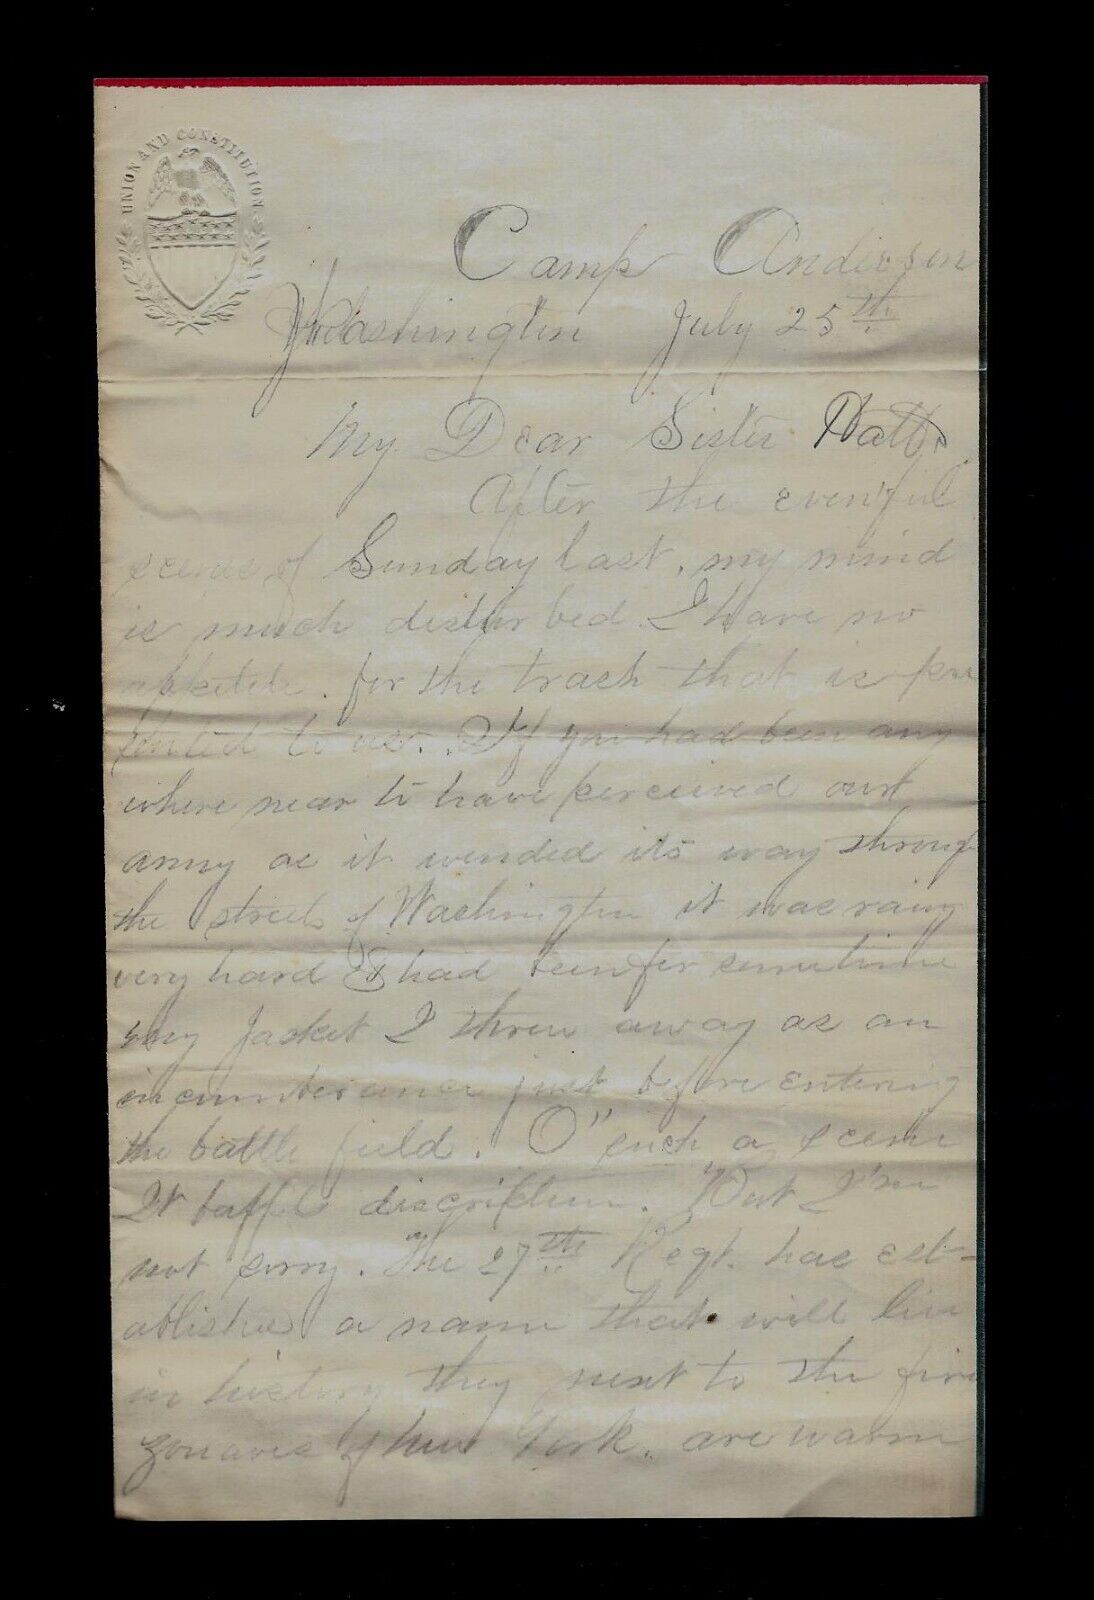 UNION AND CONSTITUTION
Camp Anderson
Washington July 25th
My Dear Sister
After the eventful
scenes of Sunday last, my mind
is much disturbed I have no
appetite. for the trash that is pre
sented to us. If you had been any
where near to have perceived our
army as it wended its way through
the streets of Washington it was rainy
very hard & had been for some time
my Jacket I threw away as an
incumberance just before entering
the battle field. O" such a scene
It baffels discription. But I'm
not sorry. The 27th Regt. has est=
ablished a name that will live
in history they next to the fire
zouaves of New York. are warm